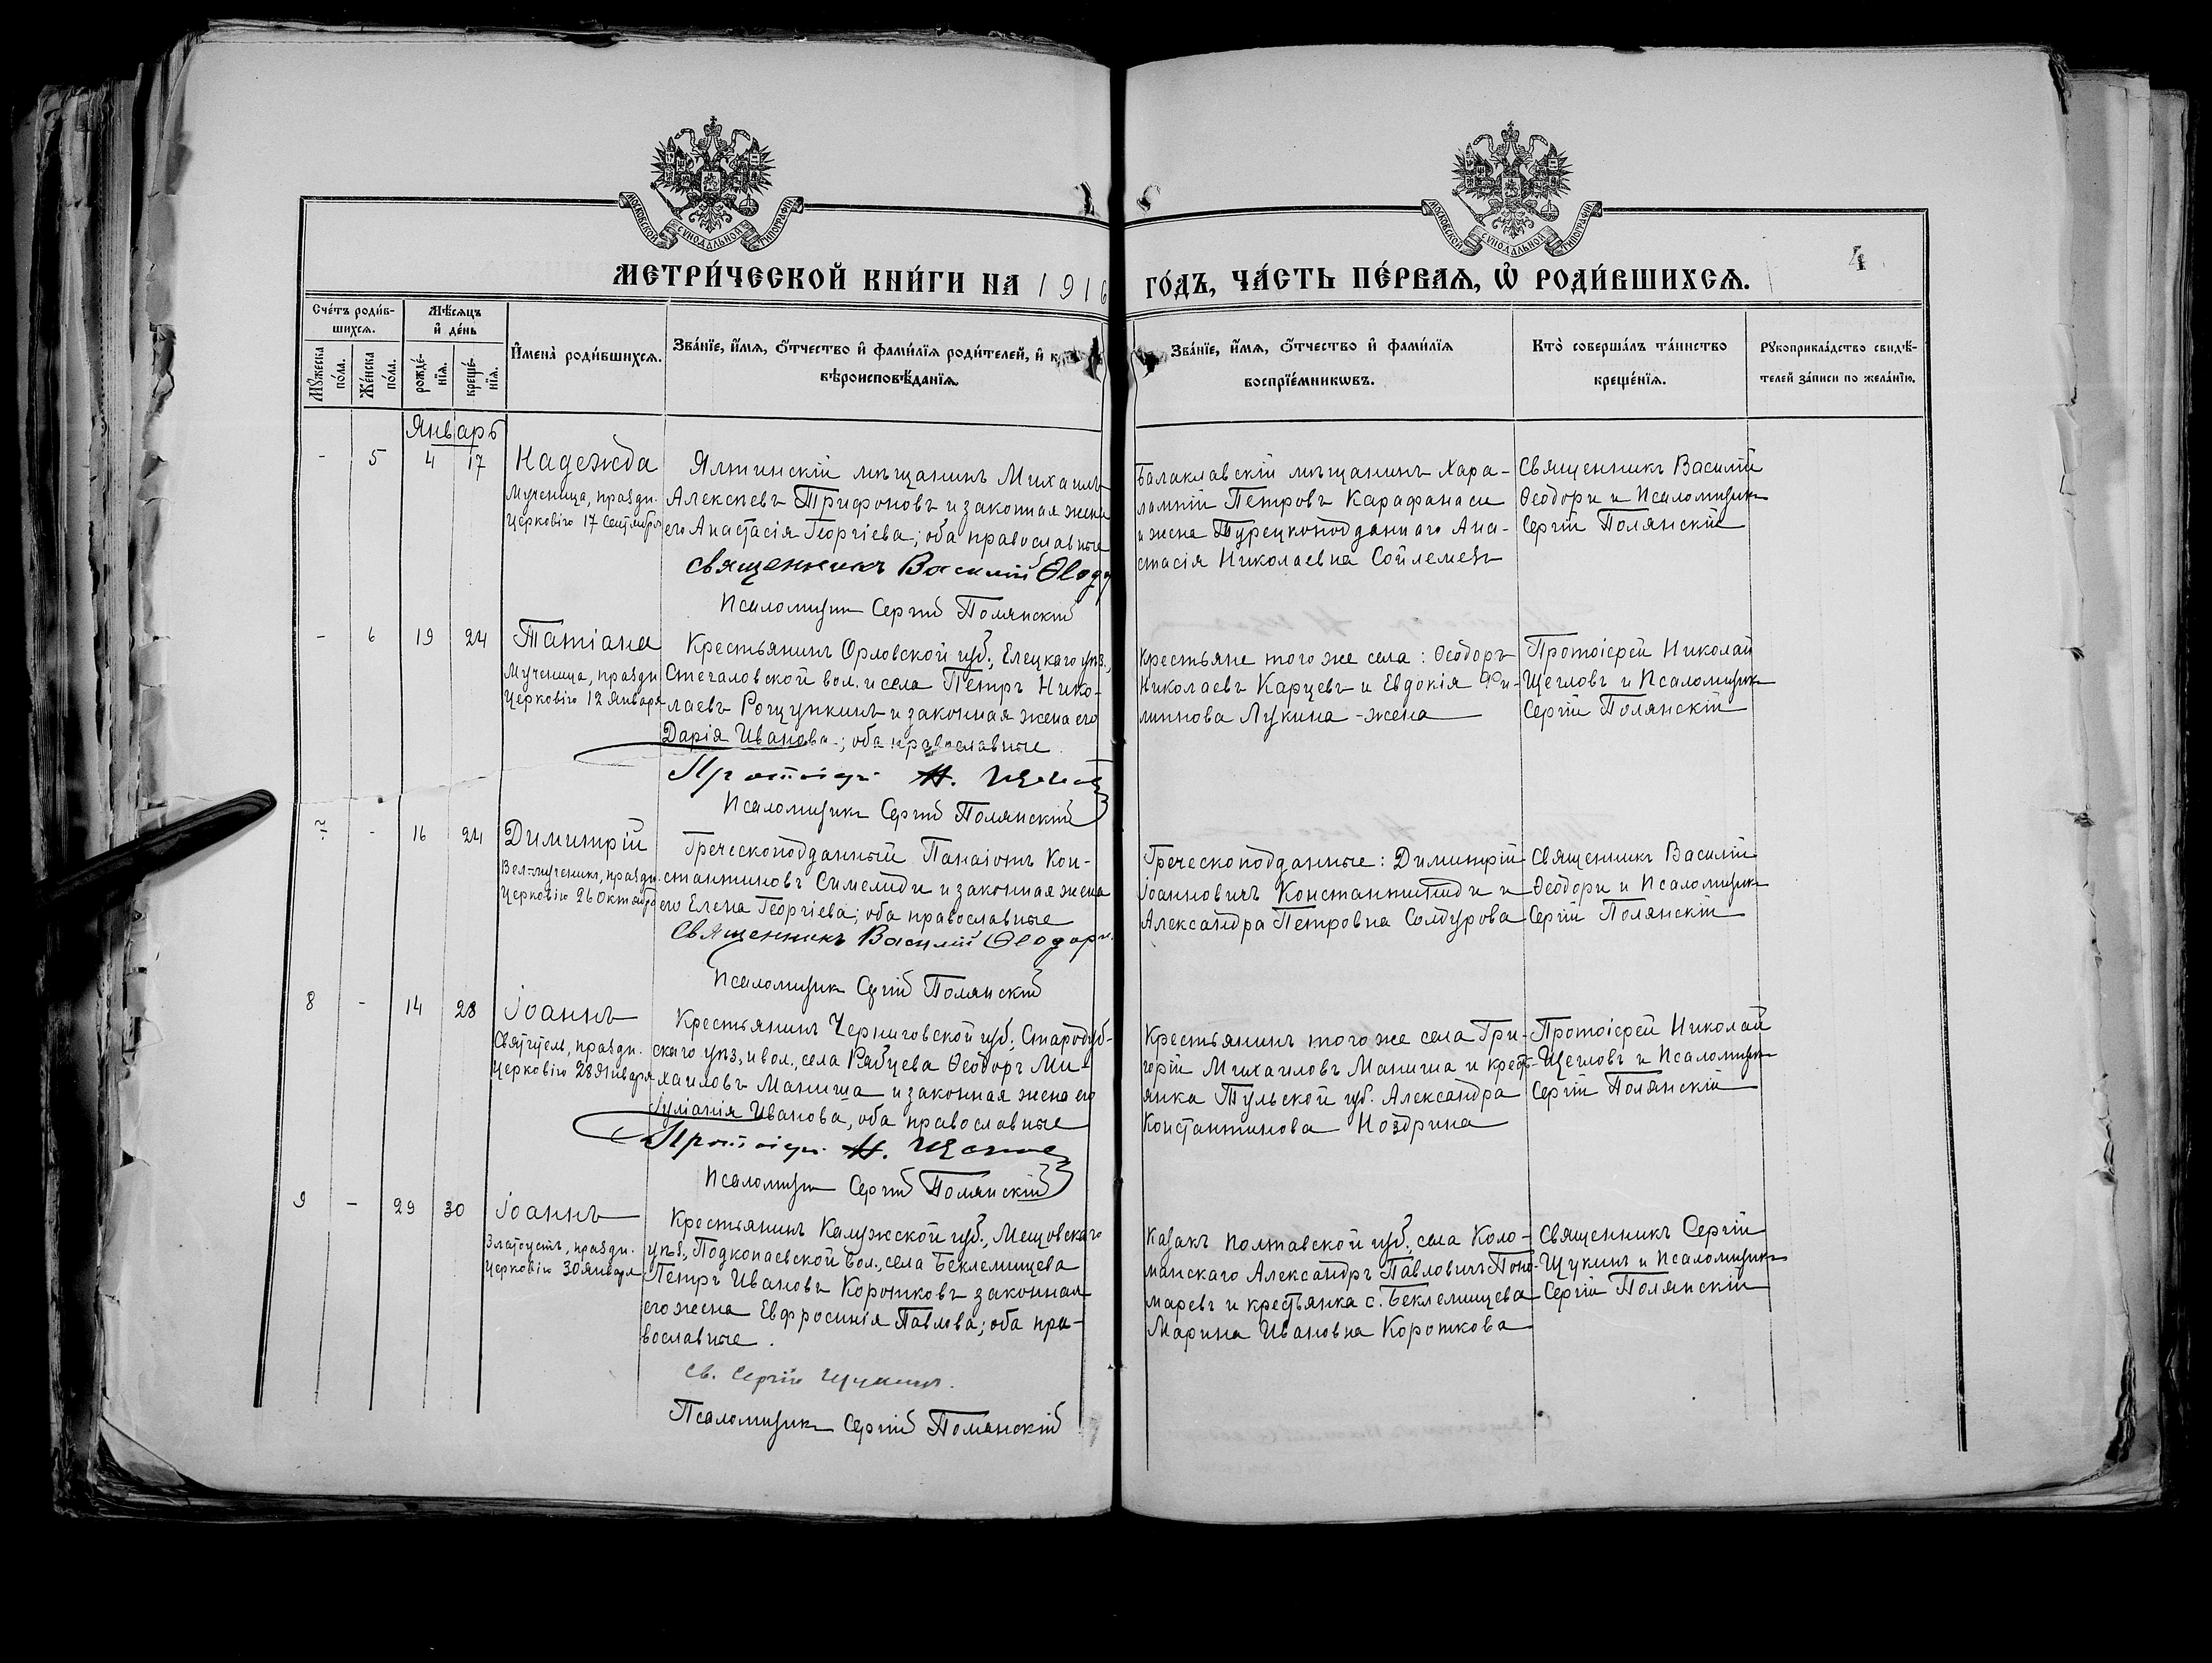 МОСКОВСКОЙ СѴНОДАЛЬНОЙ ТИПОГРАФІИ
МОСКОВСКОЙ СѴНОДАЛЬНОЙ ТИПОГРАФІИ
4
МЕТРИ́ЧЕСКОЙ КНИ́ГИ НА 1916 ГО́ДЪ, ЧА́СТЬ ПЕ́РВАѦ, Ѡ҆ РОДИ́ВШИХСѦ.
Сче́тъ роди́в-
шихсѧ.
Мѣ́сѧцъ
и҆ де́нь
Мꙋ́жеска
по́ла.
Же́нска
по́ла.
рожде́-
нїѧ.
креще́-
нїѧ.
И҆мена̀ роди́вшихсѧ.
Зва́нїе, и҆́мѧ, ѻ҆́тчество и҆ фами́лїѧ роди́телей, и҆ к
вѣроисповѣ́данїѧ.
Зва́нїе, и҆́мѧ, ѻ҆́тчество и҆ фами́лїѧ
воспрїе́мникѡвъ.
Кто̀ соверша́лъ та́инство
креще́нїѧ.
Рꙋкоприкла́дство свидѣ́-
телей за́писи по жела́нїю.
Январь
- 5 4 17
Надежда
Мученица, праздн.
Церковію 17 Сентября
Ялтинскій мѣщанинъ Михаилъ
Алексѣевъ Трифоновъ и законная жена
его Анастасія Георгіева; оба православные
Священникъ Василій Ѳеодо
Псаломщик Сергій Полянскій
Балаклавскій мѣщанинъ Хара-
лампій Петровъ Карафанаси
и жена Турецкоподданнаго Ана-
стасія Николаевна Сойлемез
Священникъ Василій
Ѳеодори и Псаломщик
Сергій Полянскій
- 6 19 24
Татіана
Мученица, праздн
Церковію 12 Января
Крестьянинъ Орловской губ., Елецкаго уѣз.,
Стегаловской вол. и села Петръ Нико-
лаевъ Рощупкинъ и законная жена его
Дарія Иванова; оба православные.
Протоіер. Н. Щегло
Псаломщик Сергій Полянскій
Крестьяне того же села: Ѳеодоръ
Николаевъ Карцевъ и Евдокія Фи-
липпова Лукина - жена
Протоіерей Николай
Щегловъ и Псаломщик
Сергій Полянскій
- 16 24
Димитрій
Вел-мученикъ, праздн.
Церковію 26 Октября
Греческоподданный Панаіотъ Кон-
стантиновъ Симелиди и законная жена
его Елена Георгіева; оба православные
Священникъ Василій Ѳеодори.
Псаломщик Сергій Полянскій
Греческоподданные: Димитрій
Іоанновичъ Константиниди и
Александра Петровна Сомурова
Священникъ Василій
Ѳеодори и Псаломщик
Сергій Полянскій
8 - 14 28
Іоаннъ
Святитель, праздн.
Церковію 28 Января
Крестьянинъ Черниговской губ., Стародуб-
скаго уѣз., и вол., села Рябцева Ѳеодоръ Ми-
хаиловъ Маниша и законная жена его
Іуліанія Иванова, оба православные
Протоіер. Н. Щегло
Псаломщик Сергій Полянскій
Крестьянинъ того же села Гри-
горій Михаиловъ Маниша и кресть-
янка Тульской губ. Александра
Константинова Ноздрина
Протоіерей Николай
Щегловъ и Псаломщик
Сергій Полянскій
9 - 29 30
Іоаннъ
Златоустъ, праздн.
Церковію 30 Января
Крестьянинъ Калужской губ., Мещовскаго
уѣз., Подкопаевской вол., села Беклемищева
Петръ Ивановъ Коротковъ законная
его жена Евфросинія Павлова; оба пра-
вославные.
Св. Сергій Щукинъ.
Псаломщик Сергій Полянскій
Казакъ Полтавской губ., села Коло-
манскаго Александръ Павловичъ Поно-
маревъ и крестьянка с. Беклемищева
Марина Ивановна Короткова
Священникъ Сергій
Щукинъ и Псаломщик
Сергій Полянскій